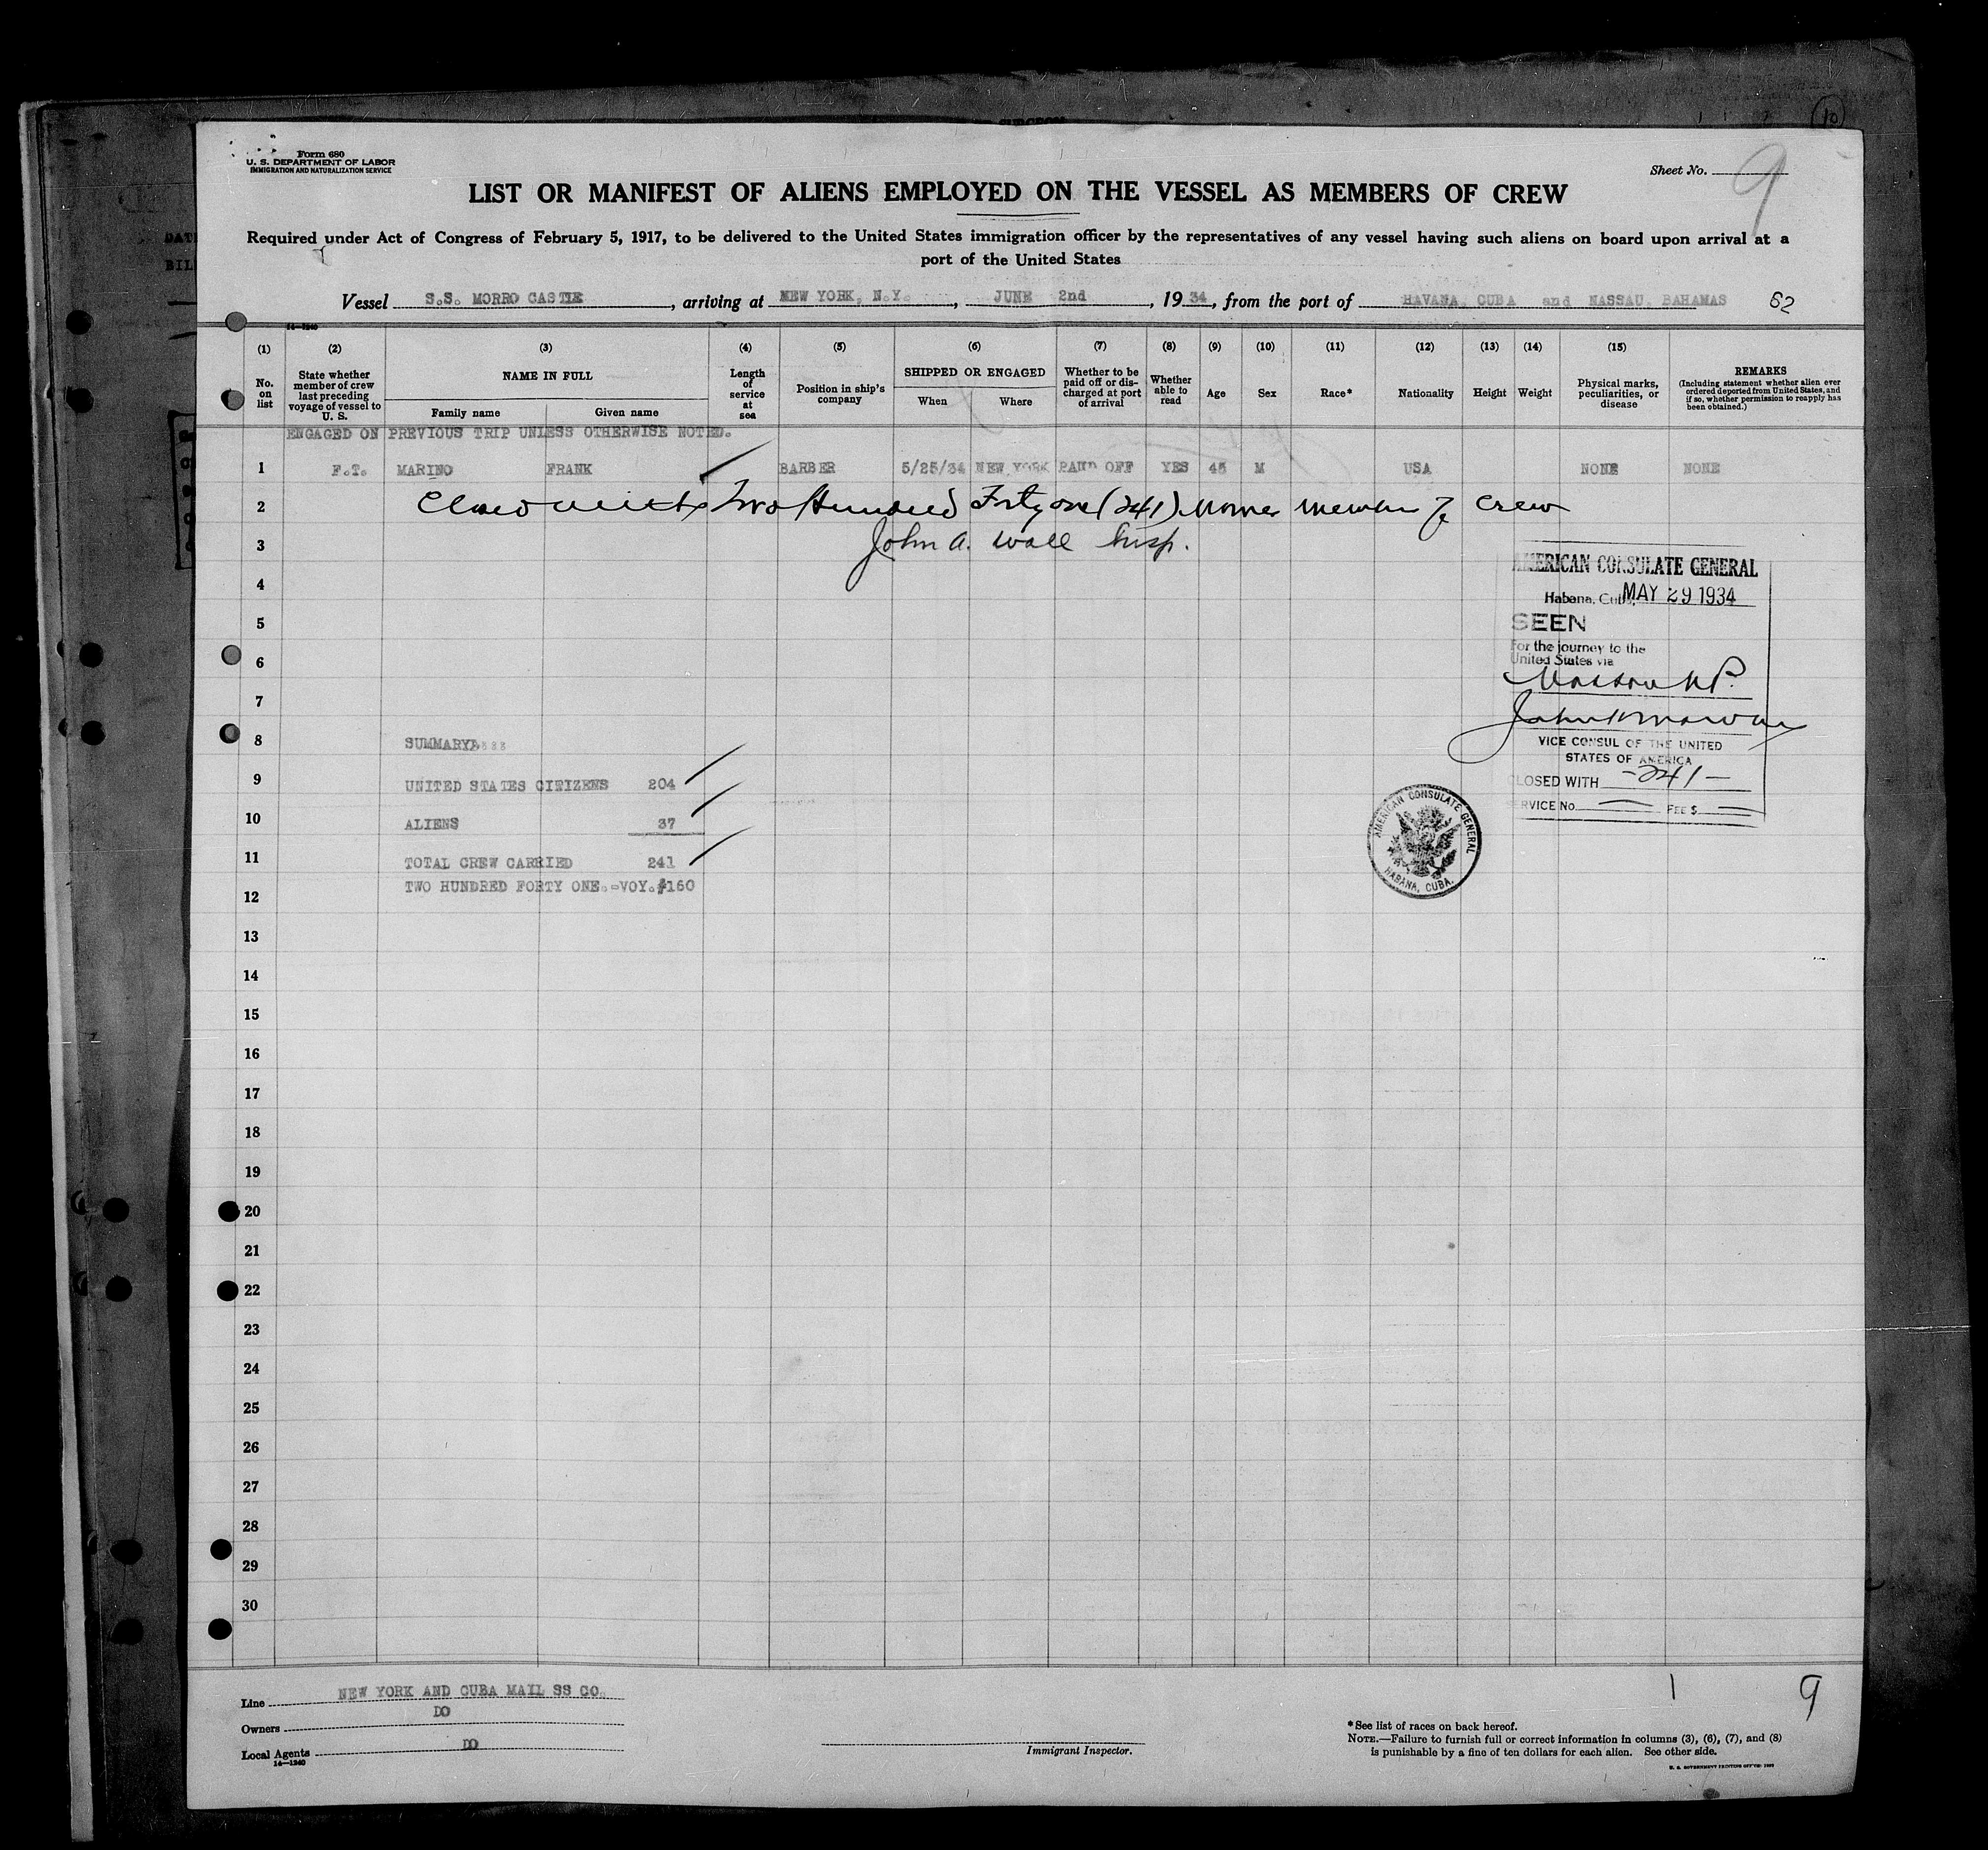 10
Form 680
U. S. DEPARTMENT OF LABOR
IMMIGRATION AND NATURALIZATION SERVICE
Sheet No. 9
LIST OR MANIFEST OF ALIENS EMPLOYED ON THE VESSEL AS MEMBERS OF CREW
Required under Act of Congress of February 5, 1917, to be delivered to the United States immigration officer by the representatives of any vessel having such aliens on board upon arrival at a
port of the United States
Vessel S.S. MORRO CASTLE, arriving at NEW YORK, N.Y., JUNE 2nd, 1934, from the port of HAVANA, CUBA and NASSAU, BAHAMAS 62
14—1240
(1) (2) (3) (4) (5) (6) (7) (8) (9) (10) (11) (12) (13) (14) (15)
No. on list
State whether member of crew last preceding voyage of vessel to U. S.
NAME IN FULL
Family name
Given name
Length of service at sea
Position in ship's company
SHIPPED OR ENGAGED
When
Where
Whether to be paid off or discharged at port of arrival
Whether able to read
Age
Sex
Race*
Nationality
Height
Weight
Physical marks, peculiarities, or disease
REMARKS
(Including statement whether alien ever ordered deported from United States, and if so, whether permission to reapply has been obtained.)
ENGAGED ON PREVIOUS TRIP UNLESS OTHERWISE NOTED.
1 F.T. MARINO FRANK BARBER 5/25/34 NEW YORK PAID OFF YES 45 M USA NONE NONE
2 Closed with Two Hundred Forty one (241) names members of crew
3 John A. Wall Insp.
4
5
6
7
8 SUMMARY
9 UNITED STATES CITIZENS 204
10 ALIENS 37
11 TOTAL CREW CARRIED 241
TWO HUNDRED FORTY ONE.-VOY.#160
12
13
14
15
16
17
18
19
20
21
22
23
24
25
26
27
28
29
30
AMERICAN CONSULATE GENERAL
Habana, Cuba, MAY 29 1934
SEEN
For the journey to the
United States via
Nassau N.P.
VICE CONSUL OF THE UNITED
STATES OF AMERICA
CLOSED WITH -241-
SERVICE No. FEE $
AMERICAN CONSULATE GENERAL
HABANA, CUBA.
Line NEW YORK AND CUBA MAIL SS CO.
Owners DO
Local Agents DO
14—1240
Immigrant Inspector.
1 9
*See list of races on back hereof.
NOTE.—Failure to furnish full or correct information in columns (3), (6), (7), and (8)
is punishable by a fine of ten dollars for each alien. See other side.